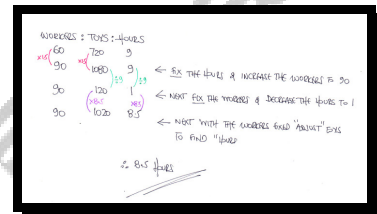 WORKERS : TOYS : HOURS
60 720 9
×1.5 ×1.5
90 1080 9 ← FIX THE HOURS & INCREASE THE WORKERS TO 90
÷9 ÷9
90 120 1 ← NEXT FIX THE WORKERS & DECREASE THE HOURS TO 1
×8.5 ×8.5
90 1020 8.5 ← NEXT WITH THE WORKERS FIXED "ADJUST" TOYS
TO FIND "HOURS
∴ 8.5 HOURS